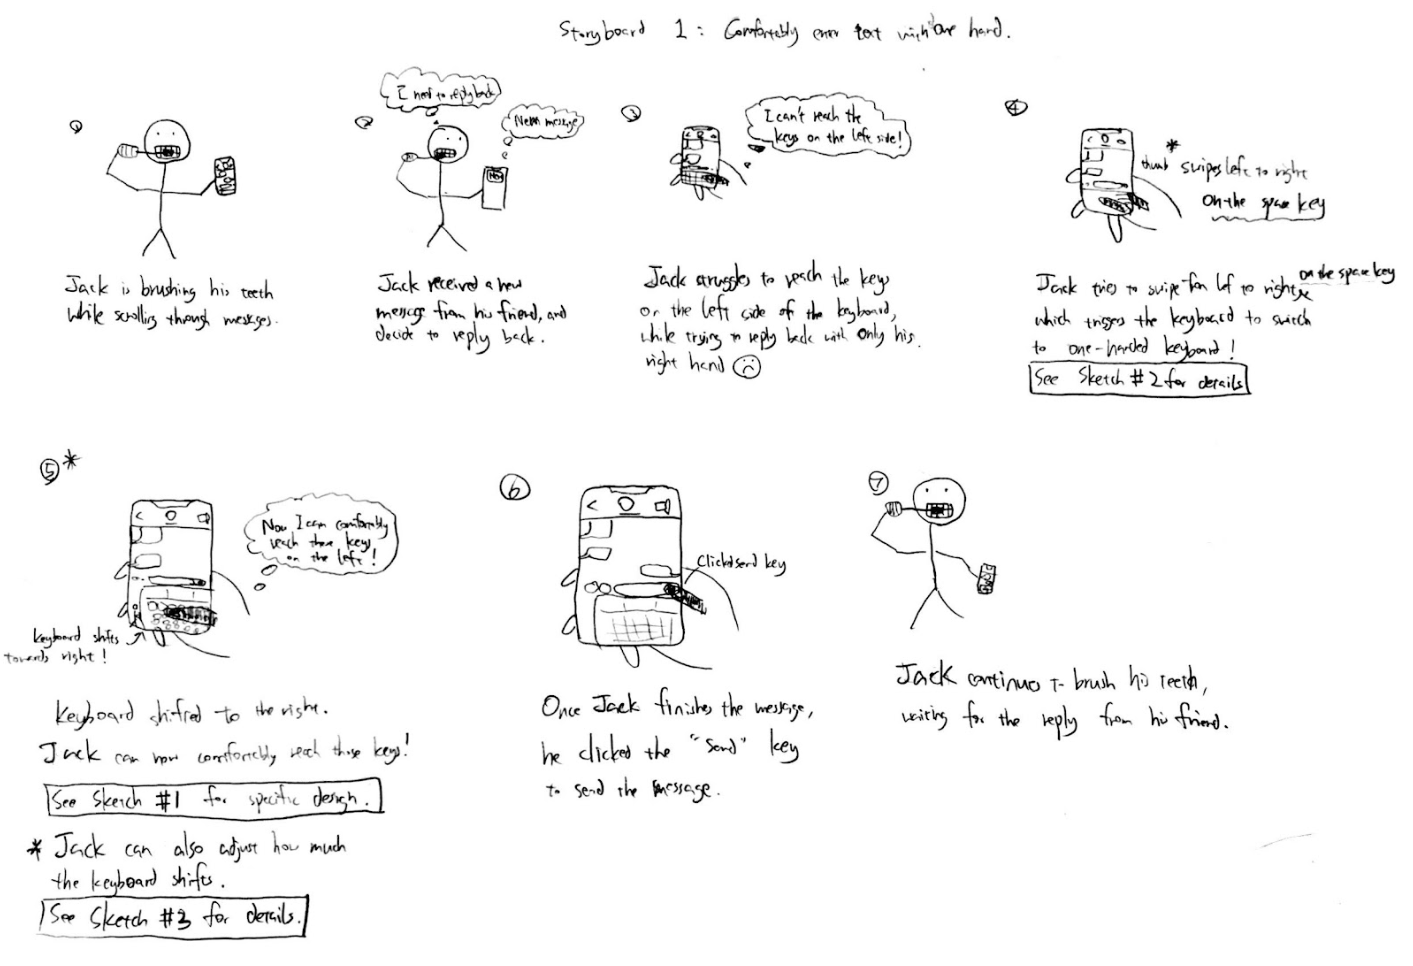 Storyboard 1: Comfortably enter text with one hand.
1
Jack is brushing his teeth
while scrolling through messages.
2
I need to reply back
New message
Jack received a new
message from his friend, and
decide to reply back.
3
I can't reach the
keys on the left side!
Jack struggles to reach the keys
on the left side of the keyboard,
while trying to reply back with only his
right hand
4
*
thumb swipes left to right
on the space key
Jack tries to swipe from left to right on the space key
which triggers the keyboard to switch
to one-handed keyboard!
See Sketch #2 for details
5 *
Now I can comfortably
reach those keys
on the left!
keyboard shifts
towards right!
Keyboard shifted to the right.
Jack can now comfortably reach those keys!
See Sketch #1 for specific design.
* Jack can also adjust how much
the keyboard shifts.
See Sketch #3 for details.
6
Clicked send key
Once Jack finishes the message,
he clicked the "Send" key
to send the message.
7
Jack continues to brush his teeth,
waiting for the reply from his friend.